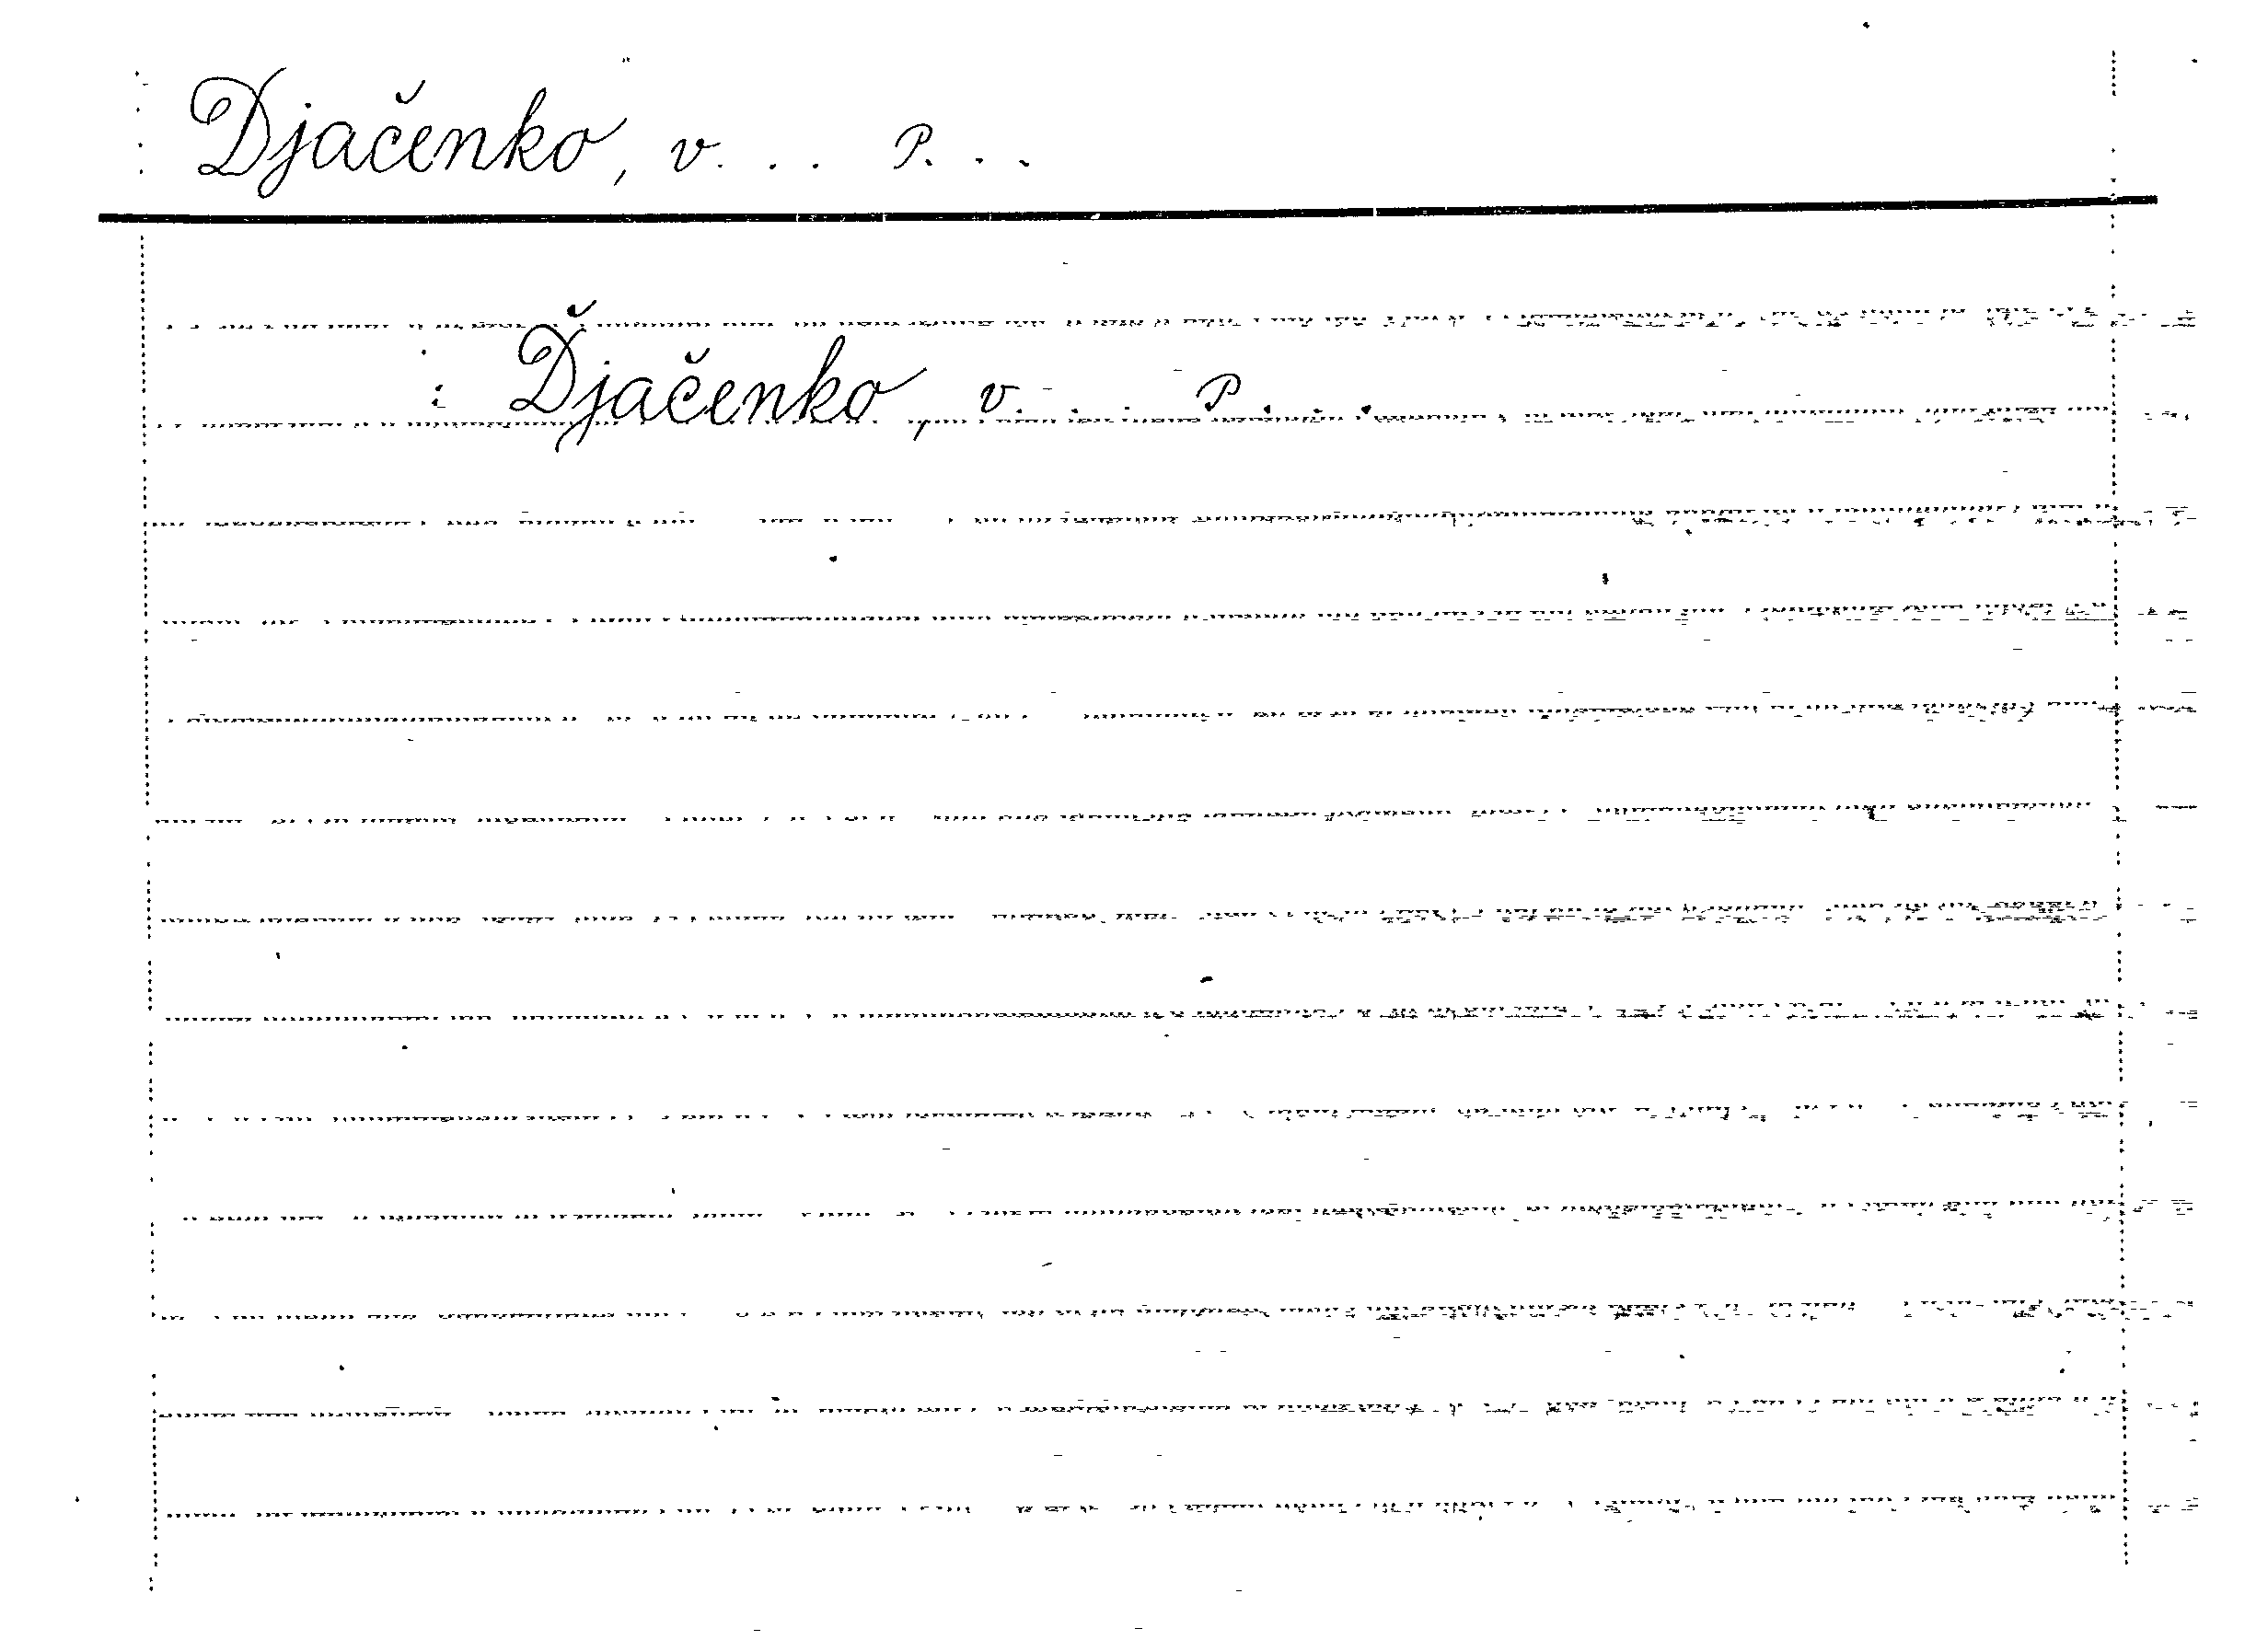 Djačenko, v... P...
: Ďjačenko, v... P...